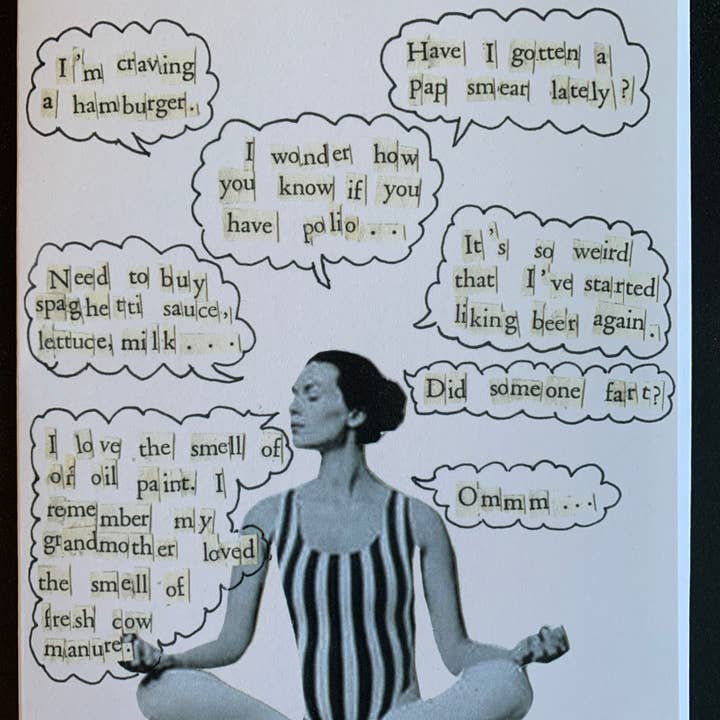 I'm craving
a hamburger.
Have I gotten a
pap smear lately?
I wonder how
you know if you
have polio...
It's so weird
that I've started
liking beer again.
Need to buy
spaghetti sauce,
lettuce, milk....
Did someone fart?
I love the smell of
of oil paint. I
remember my
grandmother loved
the smell of
fresh cow
manure.
Ommm...